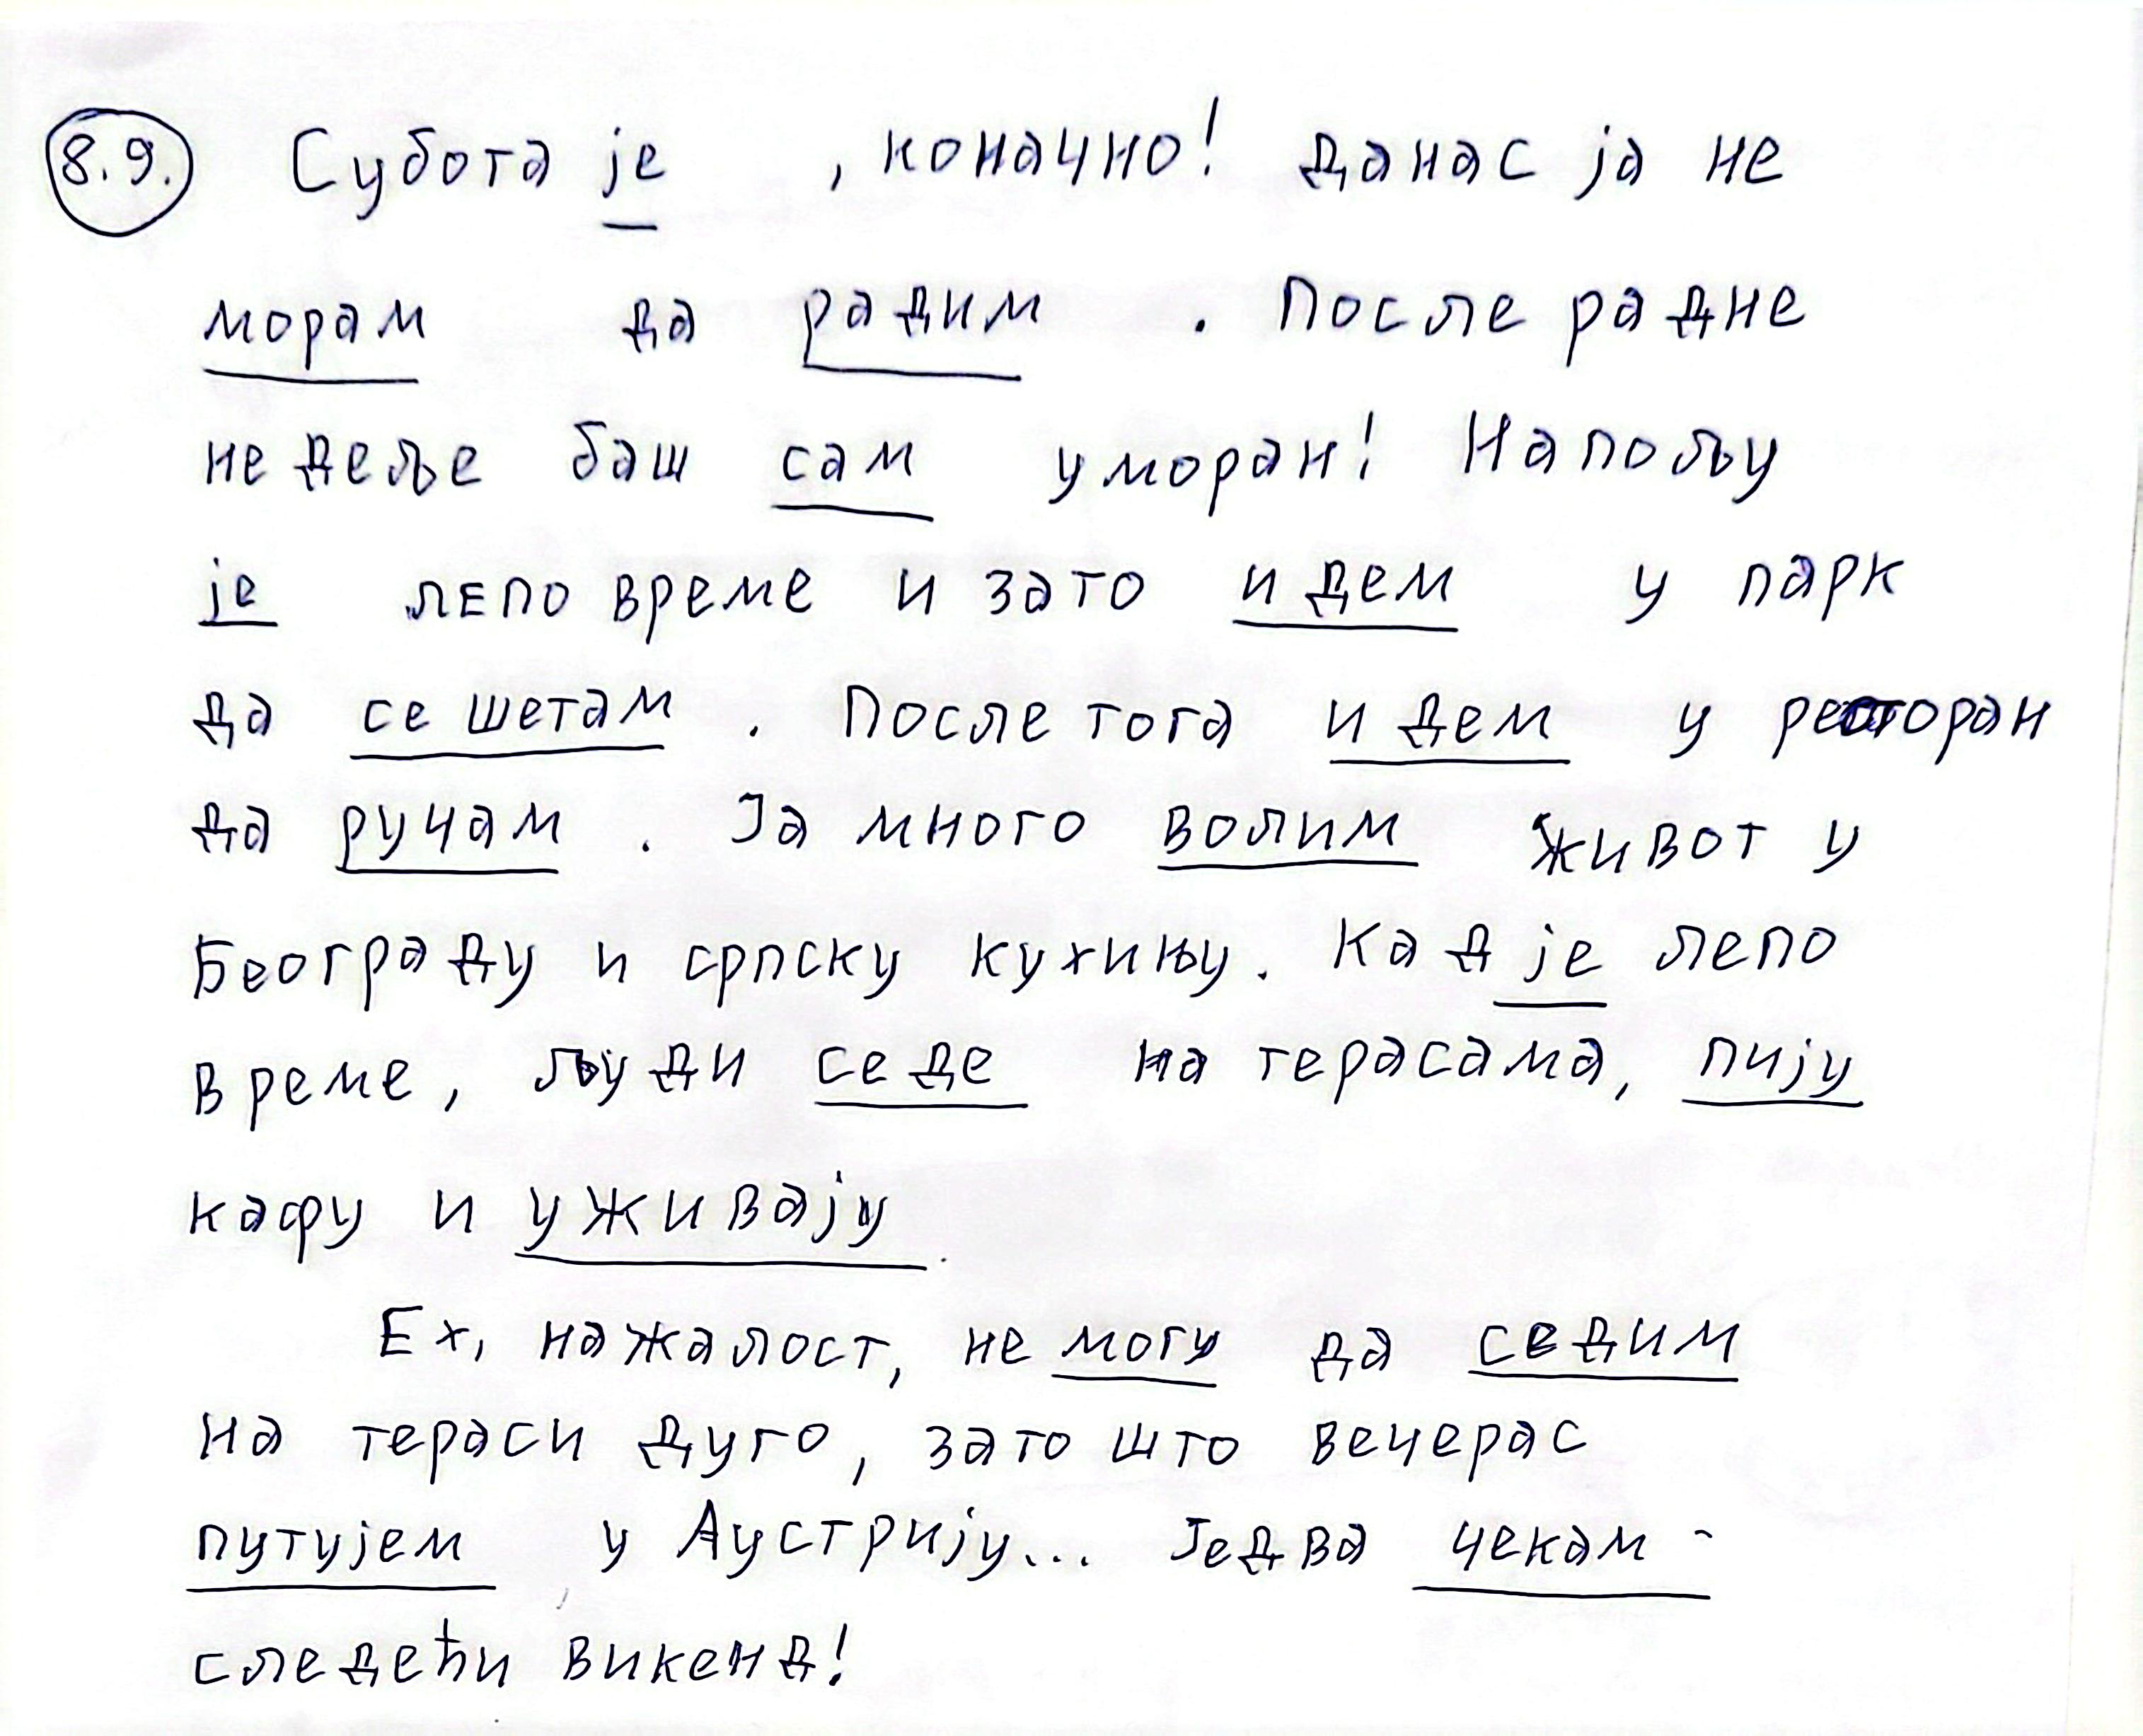 8.9. Субота је , коначно! Данас ја не
морам да радим . После радне
недеље баш сам уморан! Напољу
је лепо време и зато идем у парк
да се шетам . После тога идем у ресторан
да ручам . Ја много волим живот у
Београду и српску кухињу. Кад је лепо
време, људи седе на терасама, пију
кафу и уживају.
Ех, нажалост, не могу да седим
на тераси дуго, зато што вечерас
путујем у Аустрију... Једва чекам -
следећи викенд!